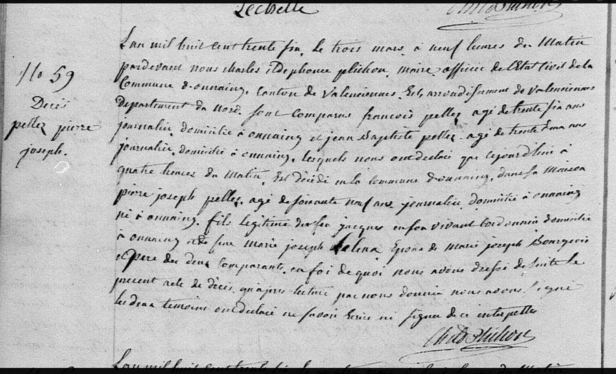 No 59
Décès
pellez pierre
joseph.
L'an mil huit cent trente six, le trois mars, à neuf heures du Matin
pardevant nous charles ildephonse plichon, maire, officier de l'Etat Civil de la
Commune d'onnaing, canton de Valenciennes Est, arrondissement de Valenciennes
Departement du Nord, sont comparus françois pellez agé de trente six ans
journalier, domicilié à onnaing et jean Baptiste pellez agé de trente ans
journalier domicilié à onnaing, lesquels nous ont déclaré que aujourd'hui à
quatre heures du Matin, Est décédé en la commune d'onnaing, dans sa maison
pierre joseph pellez, agé de soixante neuf ans journalier, domicilié à onnaing
né à onnaing, fils légitime du feu jacques en son vivant cordonnier domicilié
à onnaing et de feue marie joseph Epoux de marie joseph Bourgeois
et père des deux comparants, en foi de quoi nous avons dressé de suite le
présent acte de décès, qu'après lecture par nous donnée nous avons signé
les deux temoins ont déclaré ne savoir Ecrire ni signer de ce interpellés
Ch. ild. Plichon